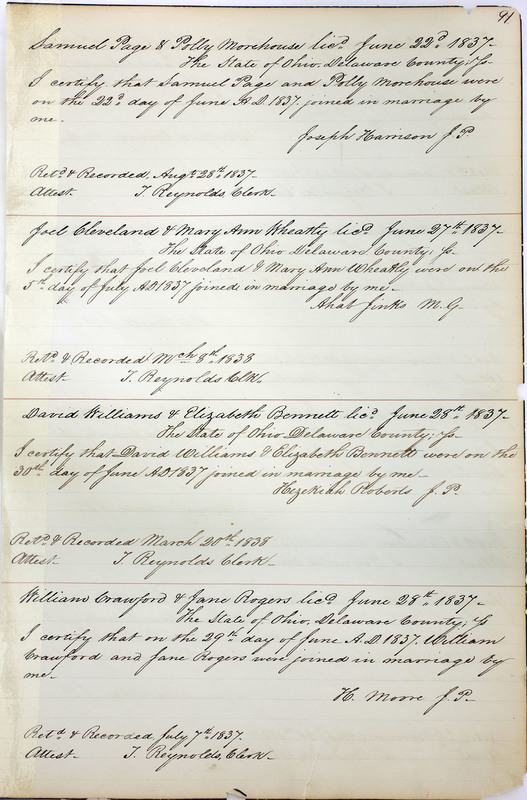 91
Samuel Page & Polly Morehouse licd. June 22d. 1837-
The State of Ohio, Delaware County; Ss-
I certify that Samuel Page and Polly Morehouse were
on the 22d. day of June A.D. 1837, joined in marriage by
me.
Joseph Harrison J. P.
Retd. & Recorded, Augt. 28th. 1837-
Attest. T. Reynolds, Clerk-
Joel Cleveland & Mary Ann Wheatly licd. June 27th. 1837-
The State of Ohio Delaware County; Ss.
I certify that Joel Cleveland & Mary Ann Wheatly were on the
5th. day of July A.D 1837 joined in marriage by me-
Ahab Jinks M. G.
Retd. & Recorded Mch 8th. 1838
Attest- T. Reynolds Clk.
David Williams & Elizabeth Bennett licd. June 28th. 1837-
The State of Ohio Delaware County; Ss-
I certify that David Williams & Elizabeth Bennett were on the
30th. day of June A.D 1837 joined in marriage by me-
Hezekiah Roberts J. P.
Retd. & Recorded March 20th. 1838
Attest- T. Reynolds Clerk-
William Crawford & Jane Rogers licd. June 28th. 1837-
The State of Ohio, Delaware County; Ss
I certify that on the 29th. day of June A.D 1837. William
Crawford and Jane Rogers were joined in marriage by
me-
H. Moore J. P-
Retd. & Recorded July 7th. 1837.
Attest- T. Reynolds, Clerk-